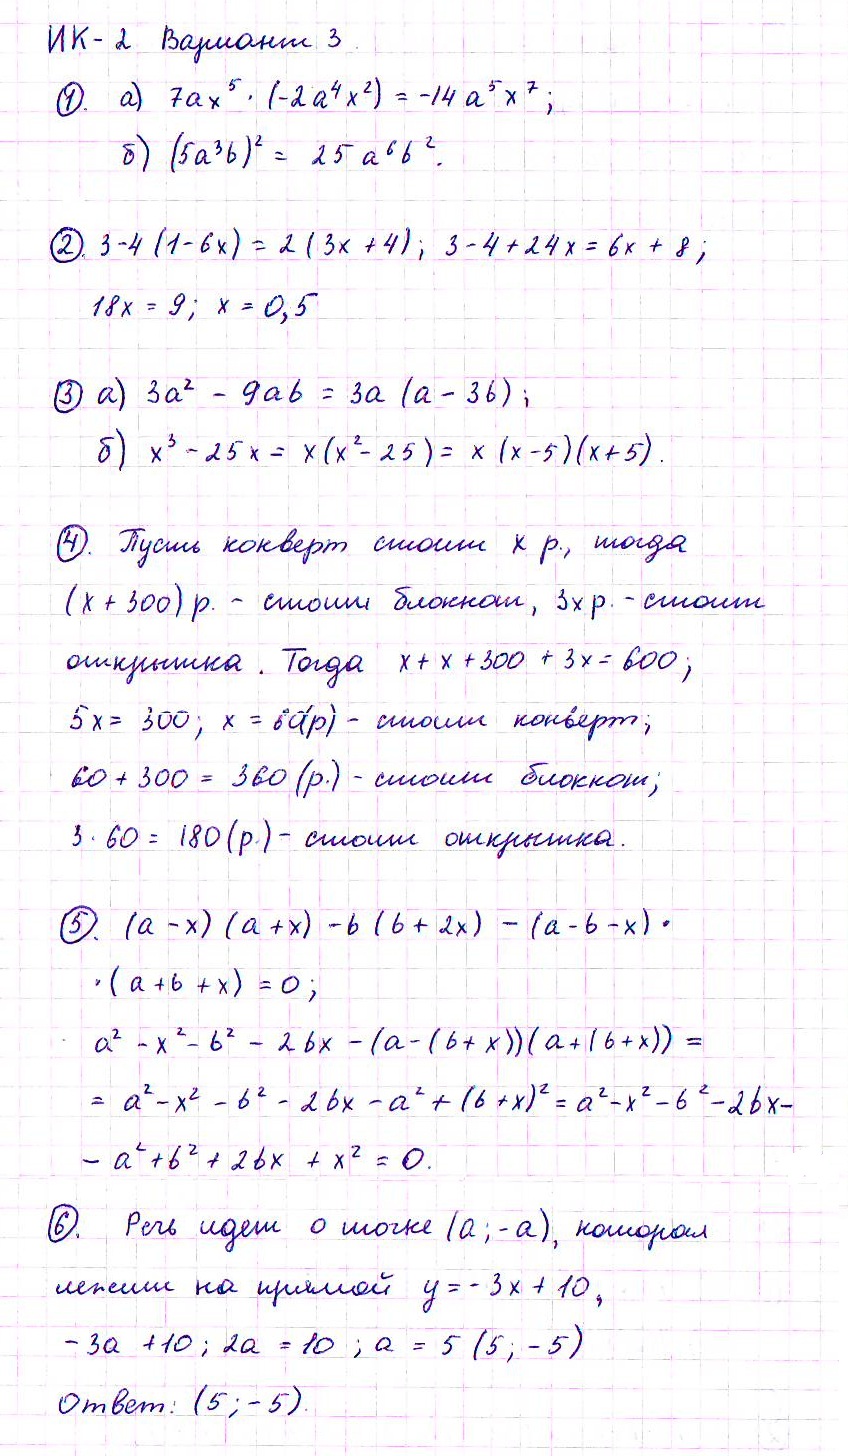 ИК-2 Вариант 3.
1. а) 7ax⁵ · (-2a⁴x²) = -14a⁵x⁷;
б) (5a³b)² = 25a⁶b².
2. 3-4(1-6x) = 2(3x+4); 3-4+24x = 6x + 8;
18x = 9; x = 0,5
3 а) 3a² - 9ab = 3a(a - 3b);
б) x³ - 25x = x(x² - 25) = x(x-5)(x+5).
4. Пусть конверт стоит x р., тогда
(x + 300) р. - стоит блокнот, 3x р. - стоит
открытка. Тогда x + x + 300 + 3x = 600;
5x = 300; x = 60(р) - стоит конверт;
60 + 300 = 360 (р.) - стоит блокнот;
3 · 60 = 180 (р.) - стоит открытка.
5. (a - x)(a + x) - b(b + 2x) - (a - b - x) ·
· (a + b + x) = 0;
a² - x² - b² - 2bx - (a - (b + x))(a + (b + x)) =
= a² - x² - b² - 2bx - a² + (b + x)² = a² - x² - b² - 2bx -
- a² + b² + 2bx + x² = 0.
6. Речь идет о точке (a; -a), которая
лежит на прямой y = -3x + 10,
-3a + 10; 2a = 10; a = 5 (5; -5)
Ответ: (5; -5).